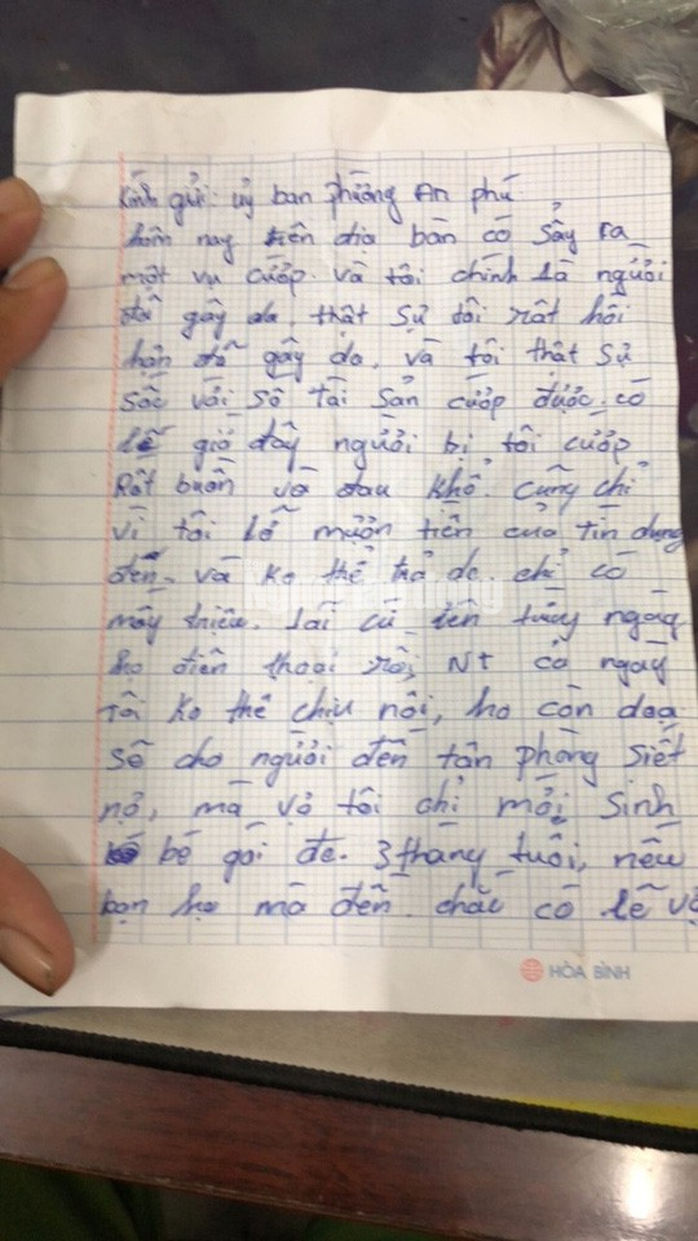 Kính gửi: uỷ ban phường An phú
hôm nay trên địa bàn có sảy ra
một vụ cướp. và tôi chính là người
đã gây da. thật sự tôi rất hối
hận đã gây da. và tôi thật sự
sốc với số tài sản cướp được. có
lẽ giờ đây người bị tôi cướp
Rất buồn và đau khổ. cũng chỉ
vì tôi lỡ mượn tiền của tín dụng
đen. và ko thể trả dc. chỉ có
mấy triệu. lãi cứ lên từng ngày
họ điện thoại rồi NT cả ngày
Tôi ko thể chịu nổi, họ còn doạ
sẽ cho người đến tận phòng siết
nợ, mà vợ tôi chỉ mới sinh
bé gái đc. 3 tháng tuổi, nếu
bọn họ mà đến. chắc có lẽ vợ
HÒA BÌNH